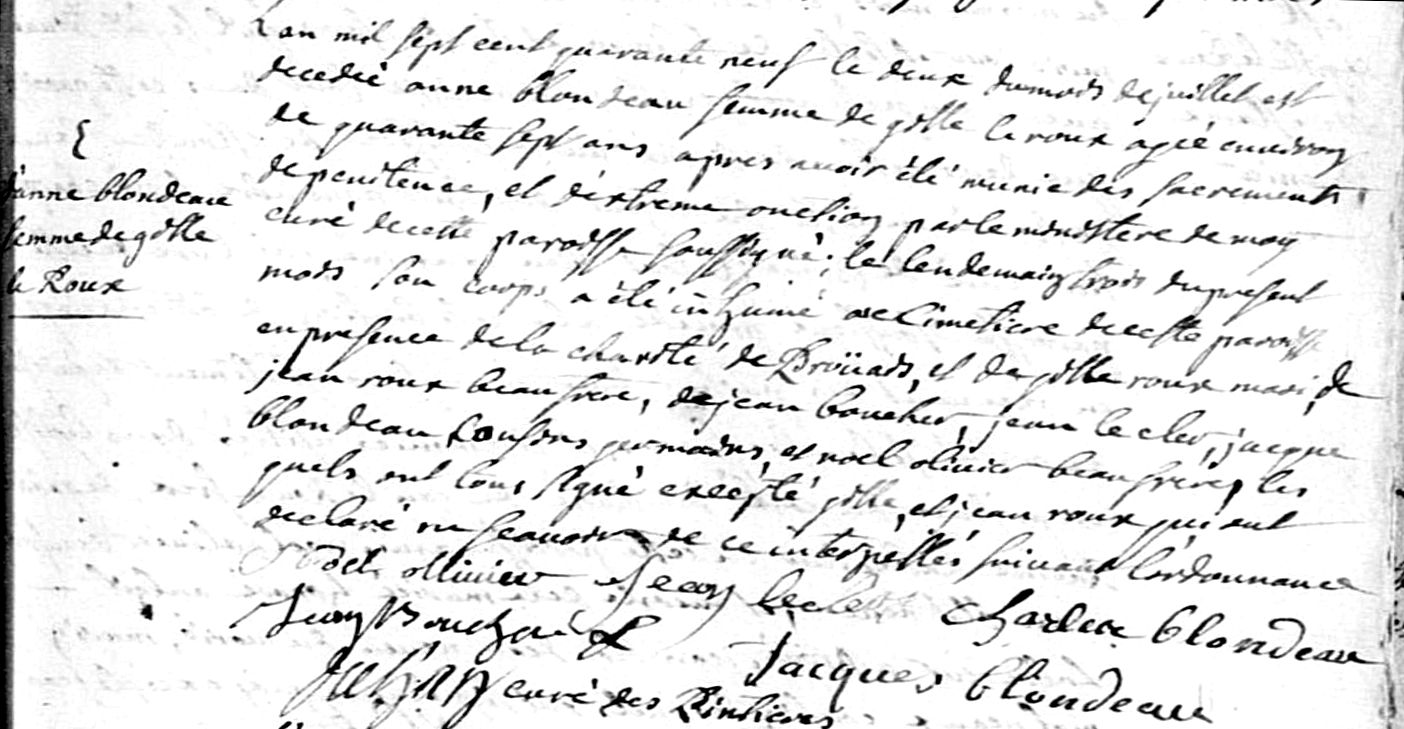 L'an mil sept cent quarante neuf le deux du mois de juillet est
decedée anne blondeau femme de gille le roux agée environ
de quarante sept ans apres avoir été munie des sacrements
de penitence, et d'extreme onction par le ministere de moy
curé de cette paroisse soussigné; le lendemain trois du present
mois son corps a été inhumé au Cimetiere de cette paroisse
en presence de la charité de Broüais, et de gille roux mari, de
jean roux beau frere, de jean boucher, jean le cler, jacque
blondeau cousins germains, et noel olivier beau frere, les
quels ont tous signé excepté gille, et jean roux qui ont
declaré ne scavoir de ce interpellés suivant l'ordonnance
anne blondeau
femme de gille
le Roux
Noel ollivier Jean leclerc Charle blondeau
Jean Boucher
Jacques blondeau
curé des Pintieres